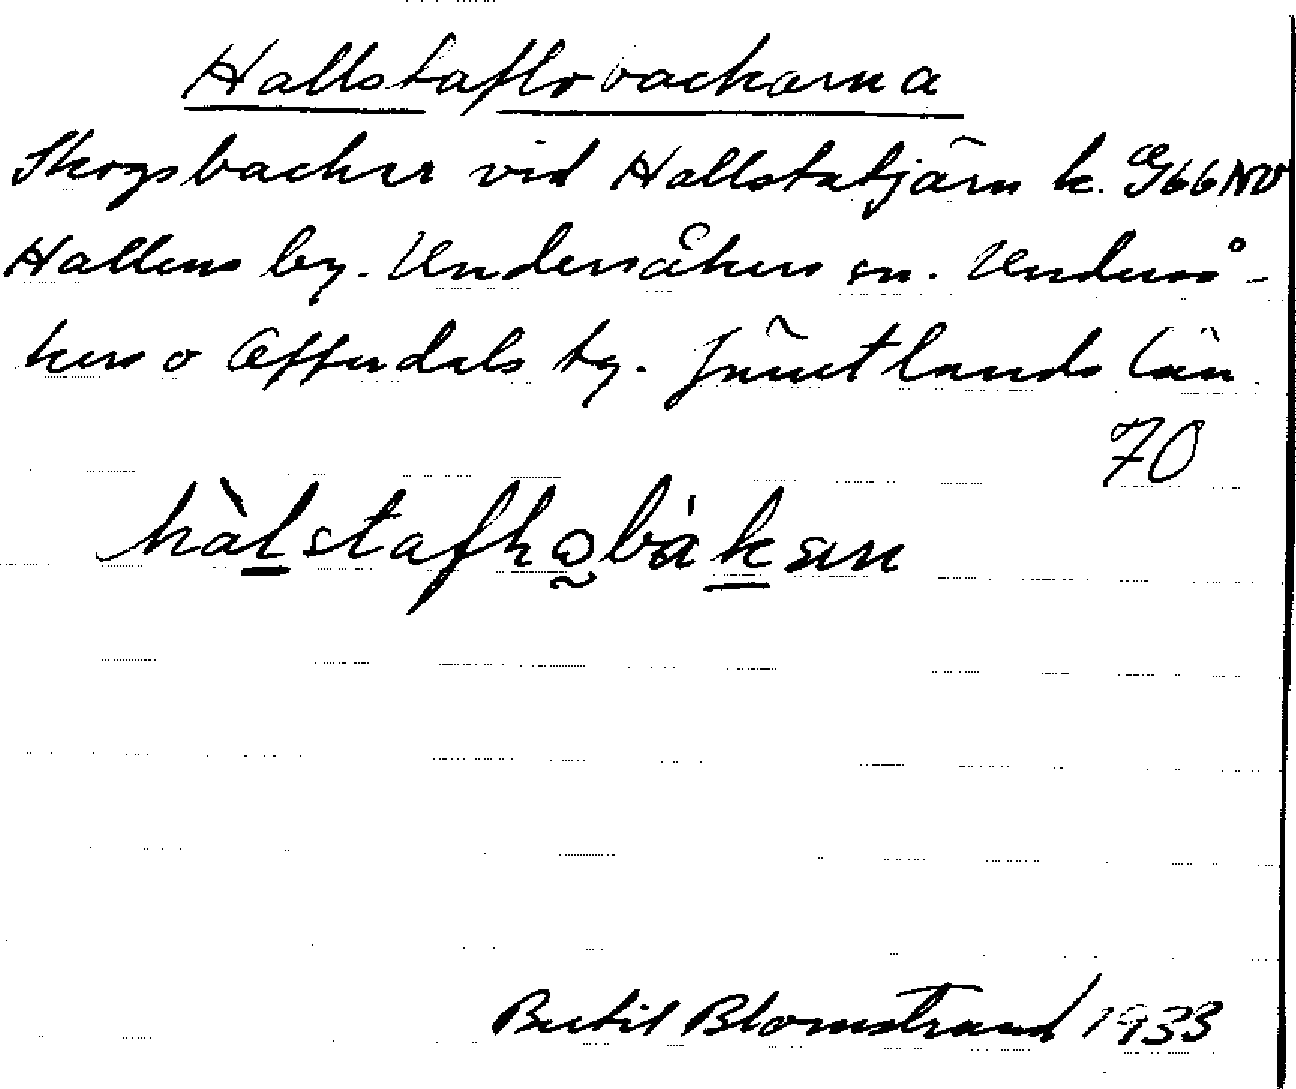 Hallstaflobackarna
Skogsbackar vid Hallstatjärn k. G66NV
Hallens by. Undersåkers sn. Underså-
kers o Offerdals tg. Jämtlands län
70
hàlstafḷobákan
Bertil Blomstrand 1933